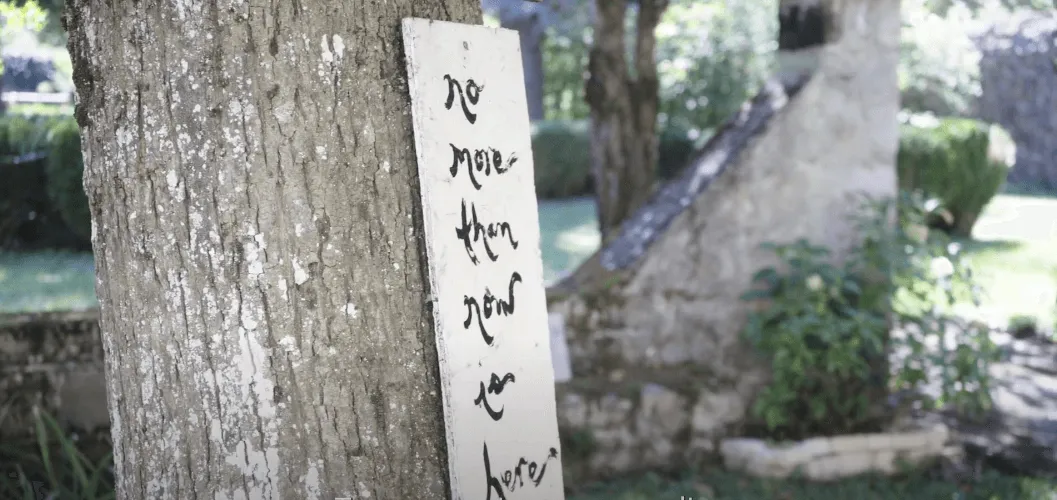 no
more
than
now
is
here